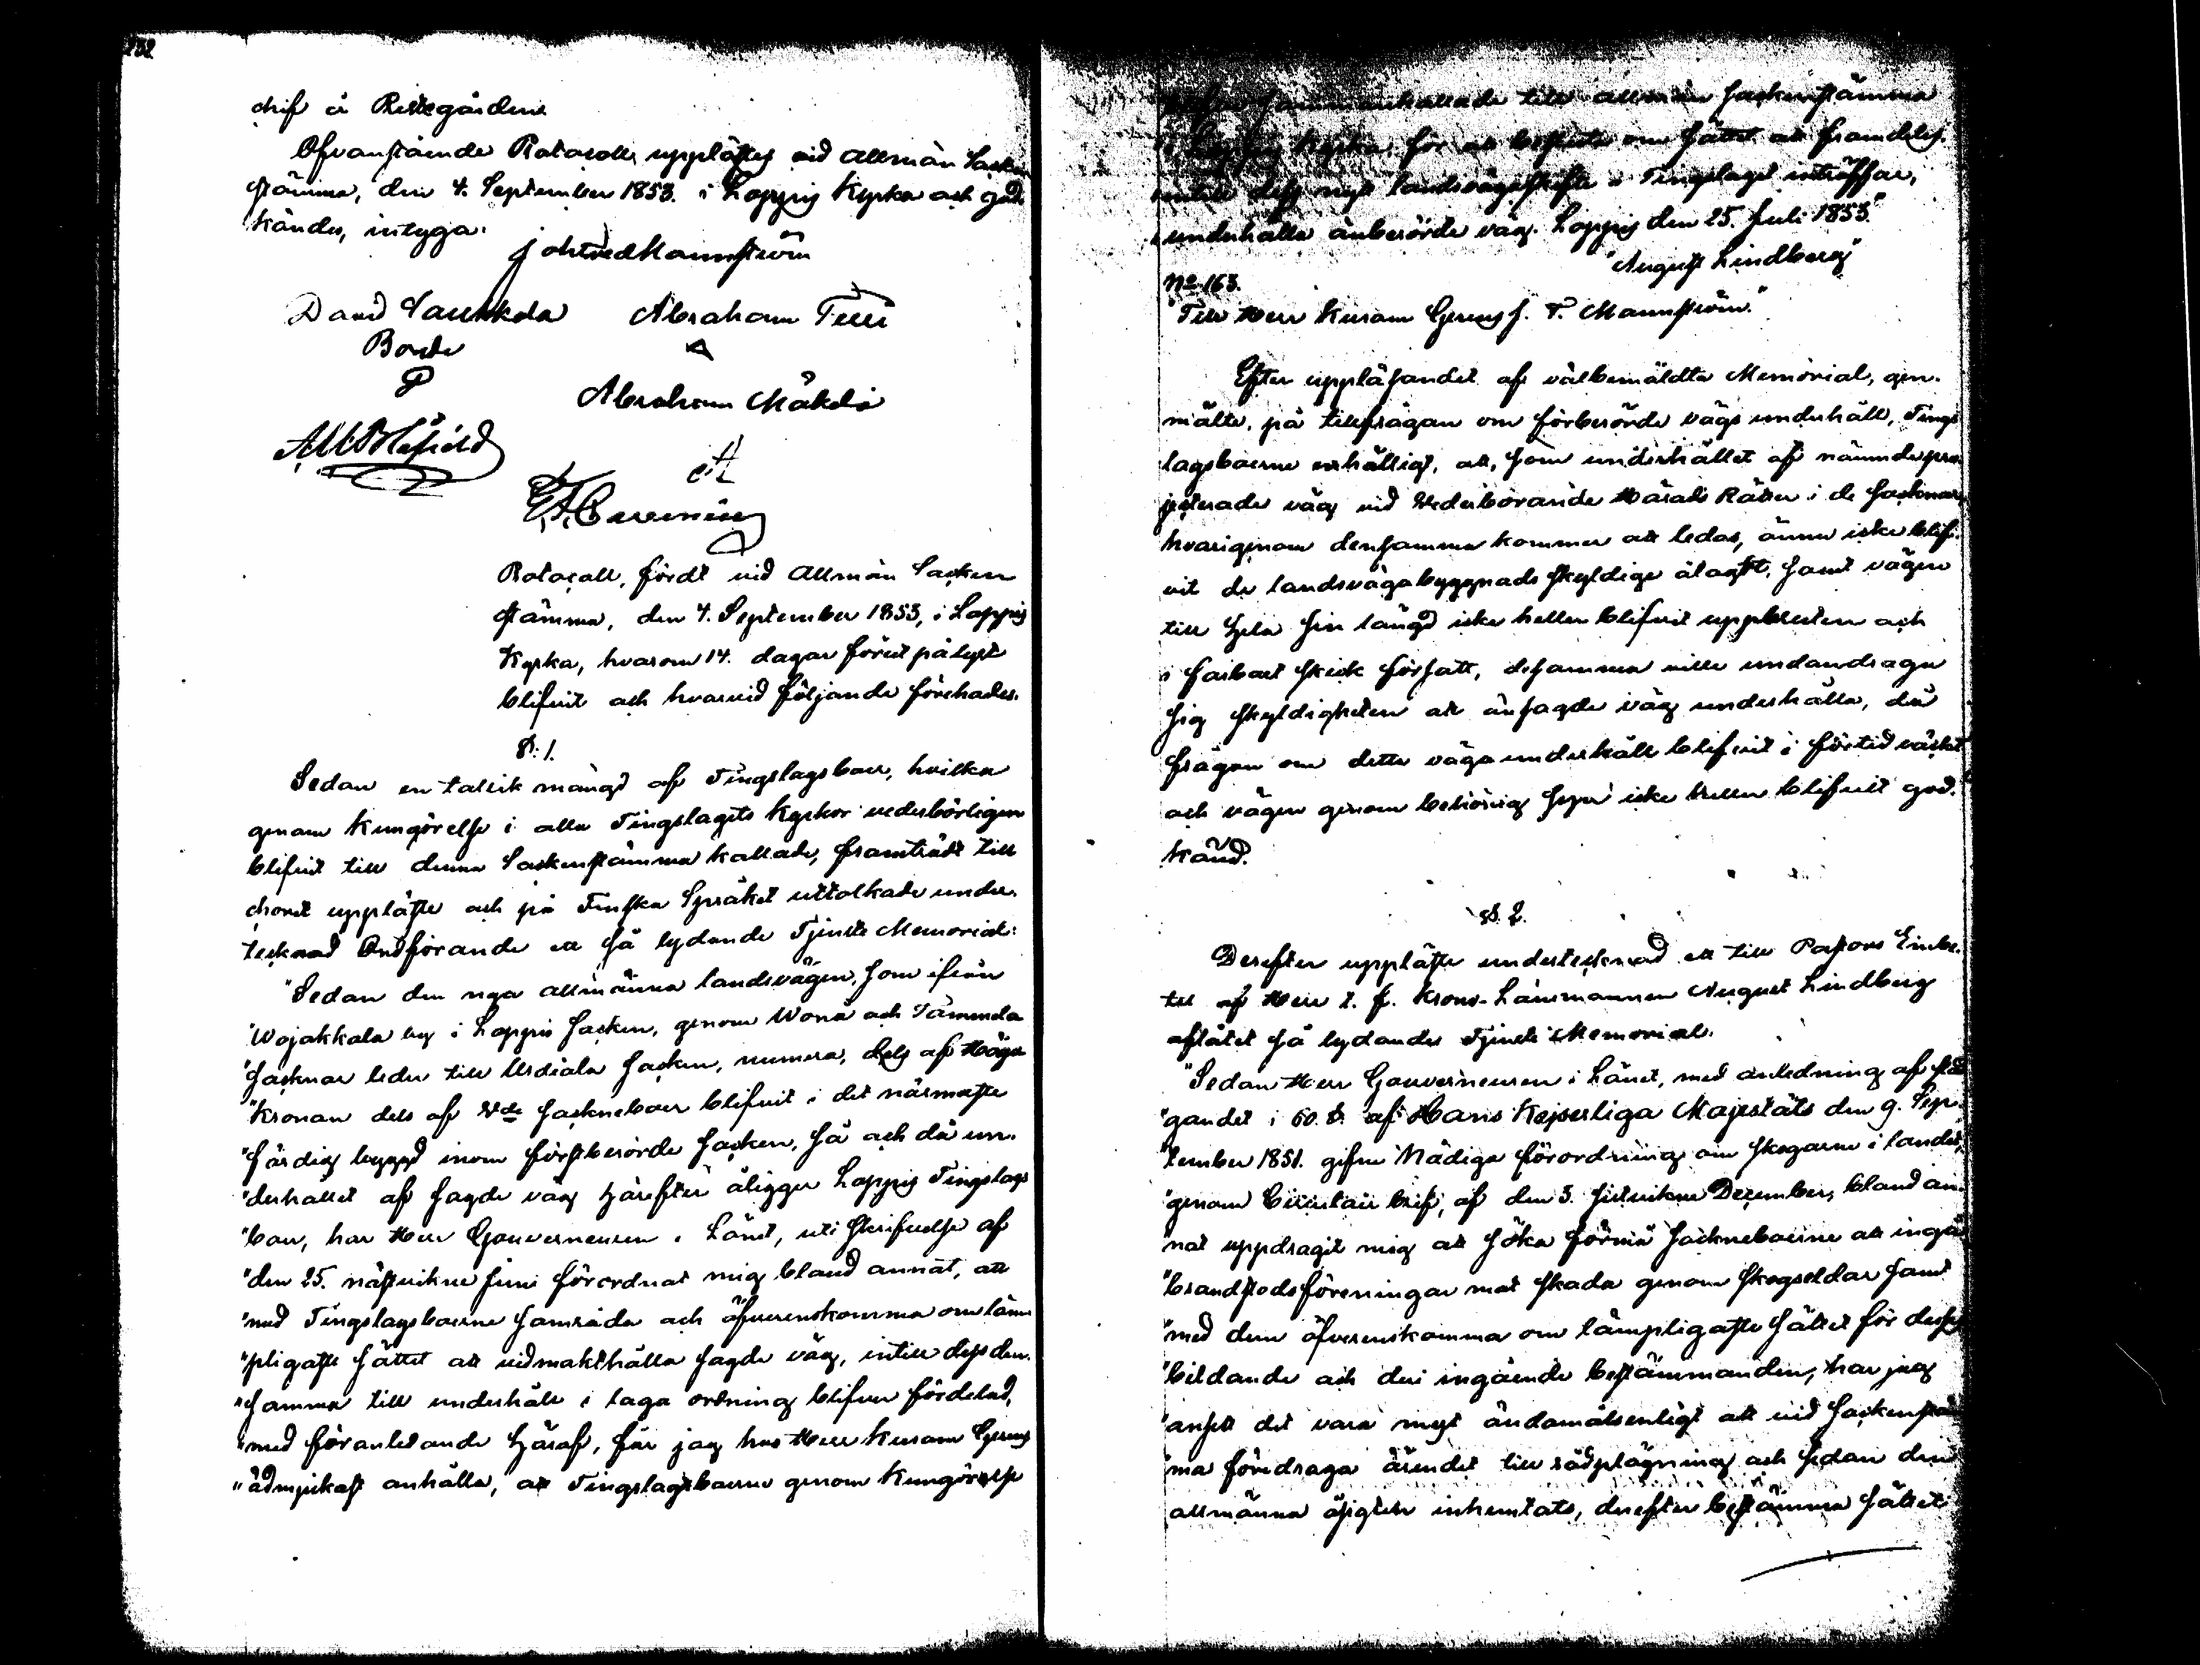 232
drif å Prestegården.
Ofvanstående Protocoll upplästes vid Allmän Socken
stämma, den 4. September 1853. i Loppis Kyrka och god
kändes, intyga.
Joh Fred Mannström
David Saukkola Abraham Filli
Bonde
Abraham Mäkelä
Protocoll, fördt vid Allmän Socken
stämma, den 4. September 1853, i Loppis
Kyrka, hvarom 14. dagar förut pålyst
blifvit och hvarvid följande förehades.
§. 1.
Sedan en talrik mängd af Tingslagsboer, hvilka
genom Kungörelse i alla Tingslagets Kyrkor vederbörligen
blifvit till denna Sockenstämma kallade, framträdt till
choret upplästes och på Finska Språket uttolkade under-
tecknad Ordförande ett så lydande Tjenste Memorial:
"Sedan den nya allmänna landsvägen, som ifrån
"Wojakkala by i Loppis Socken, genom Wånå och Tammela
"Socknar leder till Urdiala Socken, numera, dels af Höga
"Kronan dels af Vede Sockneboer blifvit i det närmaste
"färdig byggd inom förstberörde Socken, så och då un-
"derhållet af sagde väg härefter åligger Loppis Tingslags
"boer, har Herr Gouverneuren i Länet, uti skrifvelse af
"den 25. nästvikne Juni förordnat mig bland annat, att
"med Tingslagsboerne samråda och öfverenskomma om läm-
"pligaste sättet att vidmakthålla sagde väg, intill dess den-
"samma till underhåll i laga ordning blifver fördelad,
"med föranledande häraf, får jag hos Herr Kuram Gerens
"ödmjukast anhålla, att Tingslagsboerne genom Kungörelse
sammankallade till allmän Sockenstämma
i Loppis Kyrka, för att besluta om sättet att framdeles
intill dess nytt landsvägaskifte i Tingslaget inträffar,
"underhålla åuberörde väg. Loppis den 25. Juli 1853."
"August Lindberg"
No 163.
"Till Herr Kuram Gerens J. F. Mannström."
Efter uppläsandet af välbemäldte Memorial, gen-
mälte, på tillfrågan om förberörde vägs underhåll, Tings
lagsboerne enhälligt, att, som underhållet af nämnde pro-
jecterade väg vid Vederbörande Härads Rätter i de Socknar,
hvarigenom densamma kommer att ledas, ännu icke blif-
vit de landsvägabyggnads skyldige ålagdt, samt vägen
till hela sin längd icke heller blifvit uppbruten och
i farbart skick försatt, desamma ville undandraga
sig skyldigheten att ånsagde väg underhålla, då
frågan om dette väga underhåll blifvit i förtid väckt
och vägen genom behörig syn icke heller blifvit god-
känd.
§. 2.
Derefter upplästes undertecknad ett till Pastors Embe-
tet af Herr t. f. Krono-Länsmannen August Lindberg
aflåtet så lydandes Tjenste Memorial.
"Sedan Herr Gouverneuren i Länet, med anledning af stad
"gandet i 60. §. af Hans Kejserliga Majestäts den 9. Sep-
"tember 1851. gifne Nådiga förordning om skogarne i landet,
"genom Circulair bref, af den 3. sistvikne December, bland an-
nat uppdragit mig att söka förmå Sockneboerne att ingå
"brandstodsföreningar mot skada genom skogseldar samt
"med dem öfverenskomma om lämpligaste sättet för dessas
"bildande och deri ingående bestämmanden, har jag
"ansett det vara mest ändamålsenligt att vid Sockenstäm
"ma föredraga ärendet till rådplägning och sedan den
allmänna åsigten inhemtats, derefter bestämma sättet